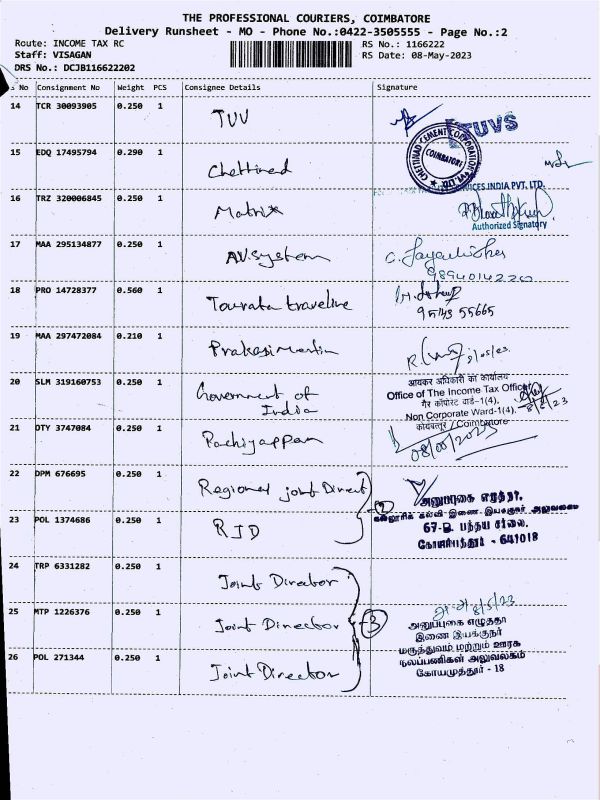 THE PROFESSIONAL COURIERS, COIMBATORE
Delivery Runsheet - MO - Phone No.:0422-3505555 - Page No.:2
Route: INCOME TAX RC RS No.: 1166222
Staff: VISAGAN RS Date: 08-May-2023
DRS No.: DCJB116622202
No Consignment No Weight PCS Consignee Details Signature
14 TCR 30093905 0.250 1 TUV
TUVS
15 EDQ 17495794 0.290 1 Chettinad
CHETTINAD CEMENT CORPORATION PVT. LTD.
COIMBATORE
16 TRZ 320006845 0.250 1 Matrix
ICES INDIA PVT. LTD.
Authorized Signatory
17 MAA 295134877 0.250 1 AV.System
C. Jayanthi
9894014220
18 PRO 14728377 0.560 1 Tourata traveline
95143 55665
19 MAA 297472084 0.210 1 Prakasimartin
8/05/23
20 SLM 319160753 0.250 1 Government of India
आयकर अधिकारी का कार्यालय
Office of The Income Tax Officer
गैर कॉर्पोरेट वार्ड-1(4).
Non Corporate Ward-1(4).
कोयंबत्तूर / Coimbatore
8/5/23
21 OTY 3747084 0.250 1 Pachiyappan
08/05/2023
22 DPM 676695 0.250 1 Regional joint Direct
2
23 POL 1374686 0.250 1 RJD
அனுபுகை எழுத்தர்,
கல்லூரிக் கல்வி இணை இயக்குநர் அலுவலகம்
67-D, பந்தய சாலை,
கோயம்புத்தூர் - 641018
24 TRP 6331282 0.250 1 Joint Director
8/5/23
25 MTP 1226376 0.250 1 Joint Director
3
26 POL 271344 0.250 1 Joint Director
அனுப்புகை எழுத்தர்
இணை இயக்குநர்
மருத்துவம் மற்றும் ஊரக
நலப்பணிகள் அலுவலகம்
கோயமுத்தூர் - 18